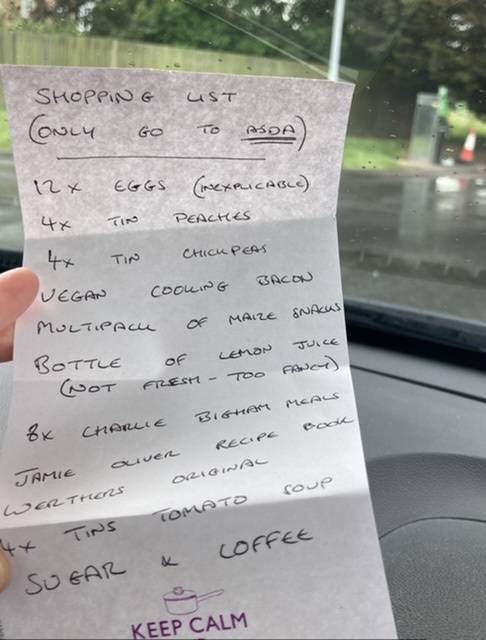 SHOPPING LIST
(ONLY GO TO ASDA)
12x EGGS (INEXPLICABLE)
4x TIN PEACHES
4x TIN CHICKPEAS
VEGAN COOKING BACON
MULTIPACK OF MAIZE SNACKS
BOTTLE OF LEMON JUICE
(NOT FRESH - TOO FANCY)
8x CHARLIE BIGHAM MEALS
JAMIE OLIVER RECIPE BOOK
WERTHERS ORIGINAL
4x TINS TOMATO SOUP
SUGAR & COFFEE
KEEP CALM